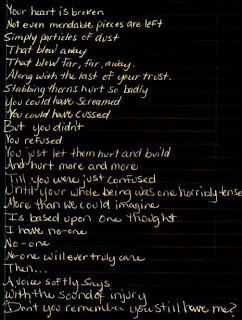 Your heart is broken
Not even mendable pieces are left
Simply particles of dust
That blew away
That blew far, far, away.
Along with the last of your trust.
Stabbing thorns hurt so badly
You could have screamed
You could have cussed
But you didn't
You refused
You just let them hurt and build
And hurt more and more
Till you were just confused
Until your whole being was one horribly tense
More than we could imagine
Is based upon one thought
I have no-one
No-one
No-one will ever truly care
Then...
A voice softly says
With the sound of injury
Don't you remember you still have me?